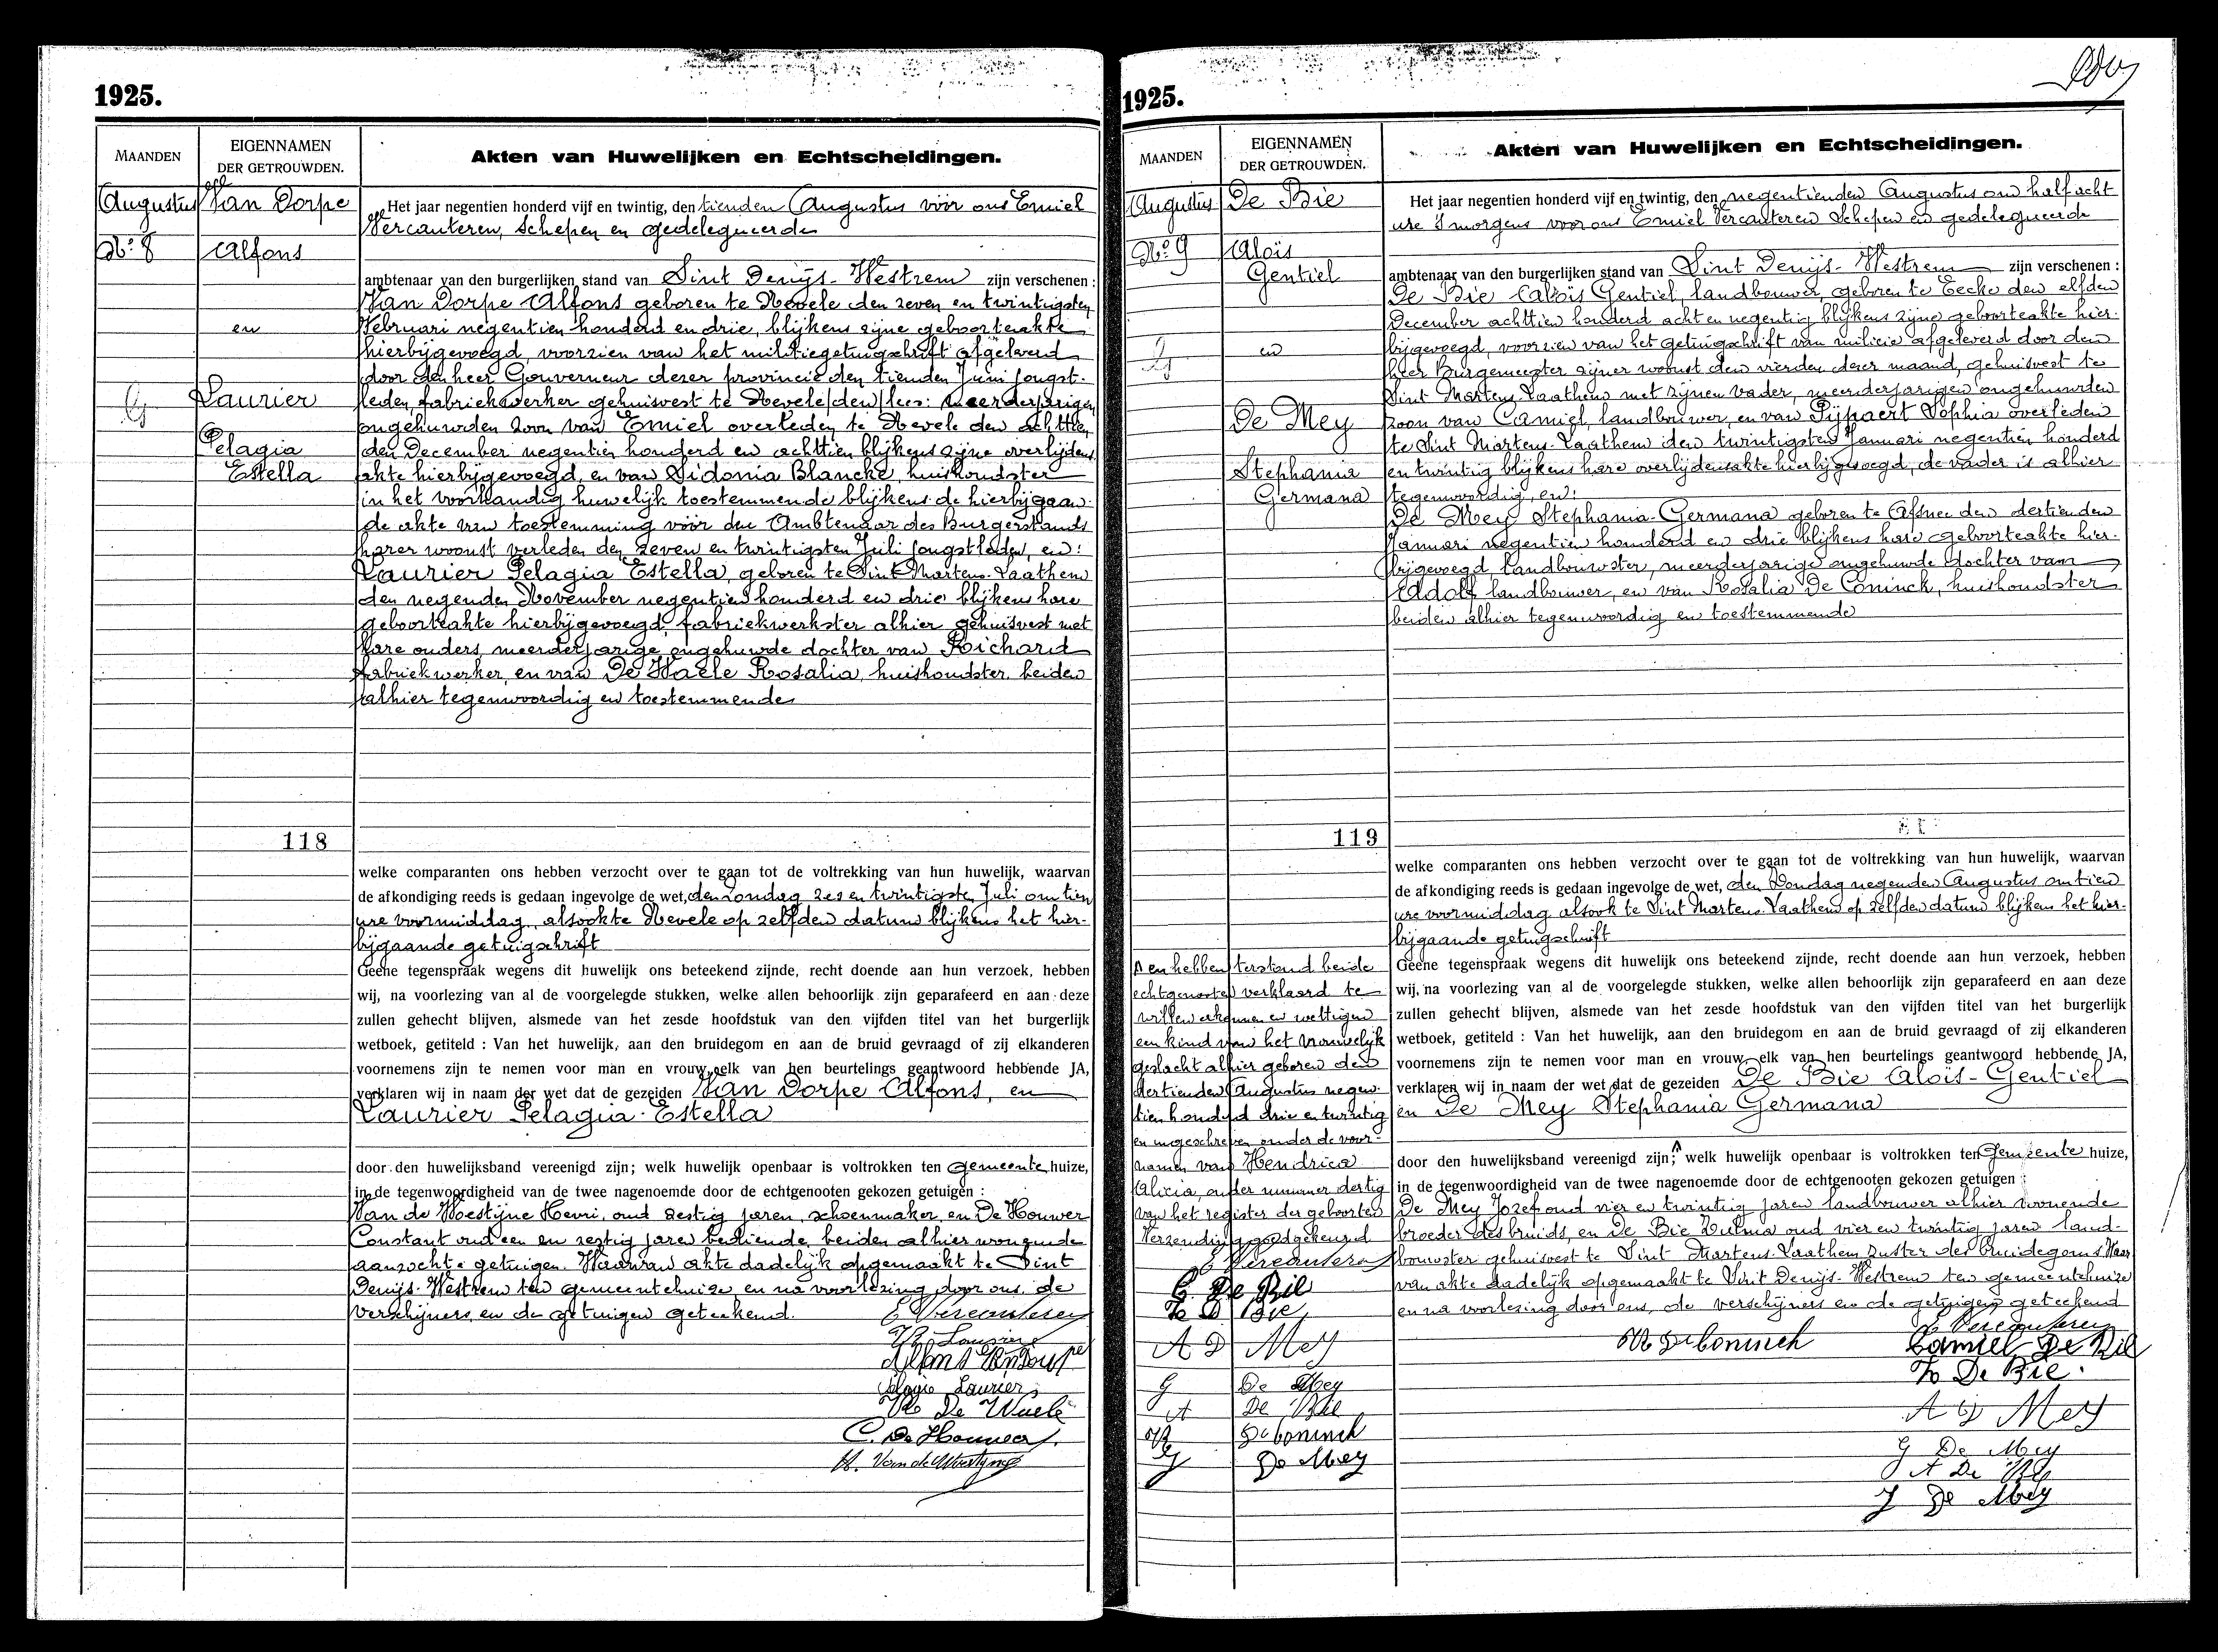 1925.
MAANDEN
EIGENNAMEN
DER GETROUWDEN.
Akten van Huwelijken en Echtscheidingen.
Augustus
Van Dorpe
No. 8
Alfons
en
Laurier
Pelagia
Estella
Het jaar negentien honderd vijf en twintig, den tienden Augustus vóór ons Emiel
Vercauteren, Schepen en gedelegueerde
ambtenaar van den burgerlijken stand van Sint Denijs-Westrem zijn verschenen :
Van Dorpe Alfons geboren te Nevele den zeven en twintigsten
Februari negentien honderd en drie, blijkens zijne geboorteakte
hierbijgevoegd, voorzien van het militiegetuigschrift afgeleverd
door den heer Gouverneur dezer provincie den tienden Juni jongst-
leden, fabriekwerker gehuisvest te Nevele /den/ lees: meerderjarigen
ongehuwden zoon van Emiel overleden te Nevele den achttien
den December negentien honderd en achttien blijkens zijne overlijdens
akte hierbijgevoegd, en van Sidonia Blancke, huishoudster
in het voorhandig huwelijk toestemmende blijkens de hierbijgaan-
de akte van toestemming vóór den Ambtenaar des Burgerstands
harer woonst verleden den zeven en twintigsten Juli jongstleden, en:
Laurier Pelagia Estella, geboren te Sint Martens-Laathem
den negenden November negentien honderd en drie blijkens hare
geboorteakte hierbijgevoegd, fabriekwerkster alhier gehuisvest met
hare ouders, meerderjarige ongehuwde dochter van Richard
fabriekwerker, en van De Waele Rosalia, huishoudster, beiden
alhier tegenwoordig en toestemmende
118
welke comparanten ons hebben verzocht over te gaan tot de voltrekking van hun huwelijk, waarvan
de afkondiging reeds is gedaan ingevolge de wet, den zondag zes en twintigsten Juli om tien
ure voormiddag, alsook te Nevele op zelfden datum blijkens het hier-
bijgaande getuigschrift
Geene tegenspraak wegens dit huwelijk ons beteekend zijnde, recht doende aan hun verzoek, hebben
wij, na voorlezing van al de voorgelegde stukken, welke allen behoorlijk zijn geparafeerd en aan deze
zullen gehecht blijven, alsmede van het zesde hoofdstuk van den vijfden titel van het burgerlijk
wetboek, getiteld : Van het huwelijk, aan den bruidegom en aan de bruid gevraagd of zij elkanderen
voornemens zijn te nemen voor man en vrouw, elk van hen beurtelings geantwoord hebbende JA,
verklaren wij in naam der wet dat de gezeiden Van Dorpe Alfons, en
Laurier Pelagia-Estella
door den huwelijksband vereenigd zijn; welk huwelijk openbaar is voltrokken ten gemeente huize,
in de tegenwoordigheid van de twee nagenoemde door de echtgenooten gekozen getuigen :
Van de Woestijne Henri, oud zestig jaren, schoenmaker, en De Houwer
Constant oud een en zestig jaren bediende, beiden alhier wonende
aanzochte getuigen. Waarvan akte dadelijk opgemaakt te Sint
Denijs-Westrem ten gemeentehuize, en na voorlezing door ons, de
verschijners, en de getuigen geteekend.
E Vercauteren
R. Laurier
Alfons Van Dorpe
Pelagie Laurier
R De Waele
C. De Houwer
H. Van de Woestyne
1925.
MAANDEN
EIGENNAMEN
DER GETROUWDEN.
Akten van Huwelijken en Echtscheidingen.
Augustus
De Bie
No. 9
Aloïs
Gentiel
en
De Mey
Stephania
Germana
Het jaar negentien honderd vijf en twintig, den negentienden Augustus om half acht
ure 's morgens voor ons Emiel Vercauteren Schepen en gedelegueerde
ambtenaar van den burgerlijken stand van Sint Denijs-Westrem zijn verschenen :
De Bie Aloïs Gentiel, landbouwer, geboren te Eecke den elfden
December achttien honderd acht en negentig blijkens zijne geboorteakte hier-
bijgevoegd, voorzien van het getuigschrift van milicie afgeleverd door den
heer Burgemeester zijner woonst den vierden dezer maand, gehuisvest te
Sint Martens-Laathem met zijnen vader, meerderjarigen ongehuwden
zoon van Camiel, landbouwer, en van Pijpaert Sophia overleden
te Sint Martens-Laathem den twintigsten Januari negentien honderd
en twintig blijkens hare overlijdensakte hierbijgevoegd, de vader is alhier
tegenwoordig, en:
De Mey Stephania-Germana geboren te Afsnee den dertienden
Januari negentien honderd en drie blijkens hare geboorteakte hier-
bijgevoegd landbouwster, meerderjarige ongehuwde dochter van
Adolf landbouwer, en van Rosalia De Coninck, huishoudster
beiden alhier tegenwoordig en toestemmende
119
welke comparanten ons hebben verzocht over te gaan tot de voltrekking van hun huwelijk, waarvan
de afkondiging reeds is gedaan ingevolge de wet, den Zondag negenden Augustus om tien
ure voormiddag alsook te Sint Martens-Laathem op zelfden datum blijkens het hier-
bijgaande getuigschrift
Geene tegenspraak wegens dit huwelijk ons beteekend zijnde, recht doende aan hun verzoek, hebben
wij, na voorlezing van al de voorgelegde stukken, welke allen behoorlijk zijn geparafeerd en aan deze
zullen gehecht blijven, alsmede van het zesde hoofdstuk van den vijfden titel van het burgerlijk
wetboek, getiteld : Van het huwelijk, aan den bruidegom en aan de bruid gevraagd of zij elkanderen
voornemens zijn te nemen voor man en vrouw, elk van hen beurtelings geantwoord hebbende JA,
verklaren wij in naam der wet dat de gezeiden De Bie Aloïs-Gentiel
en De Mey Stephania Germana
door den huwelijksband vereenigd zijn; welk huwelijk openbaar is voltrokken ten Gemeente huize,
in de tegenwoordigheid van de twee nagenoemde door de echtgenooten gekozen getuigen :
De Mey Jozef oud vier en twintig jaren landbouwer alhier wonende
broeder des bruids, en De Bie Zulma oud vier en twintig jaren land-
bouwster gehuisvest te Sint Martens-Laathem zuster des bruidegoms Waar
van akte dadelijk opgemaakt te Sint Denijs-Westrem ten gemeentehuize
en na voorlezing door ons, de verschijners en de getuigen geteekend
E Vercauteren
R De Coninck
Camiel De Bie
Z De Bie.
A D Mey
G De Mey
A De Bie
J De Mey
∧ en hebben terstond beide
echtgenooten verklaard te
willen erkennen en wettigen
een kind van het vrouwelijk
geslacht alhier geboren den
dertienden Augustus negen-
tien honderd drie en twintig
en ingeschreven onder de voor-
namen van Hendrica
Alicia, onder nummer dertig
van het register der geboorten
Verzending goedgekeurd
E Vercauteren
C. De Bie
Z D Bie
A D Mey
G De Mey
A De Bie
R De Coninck
J De Mey